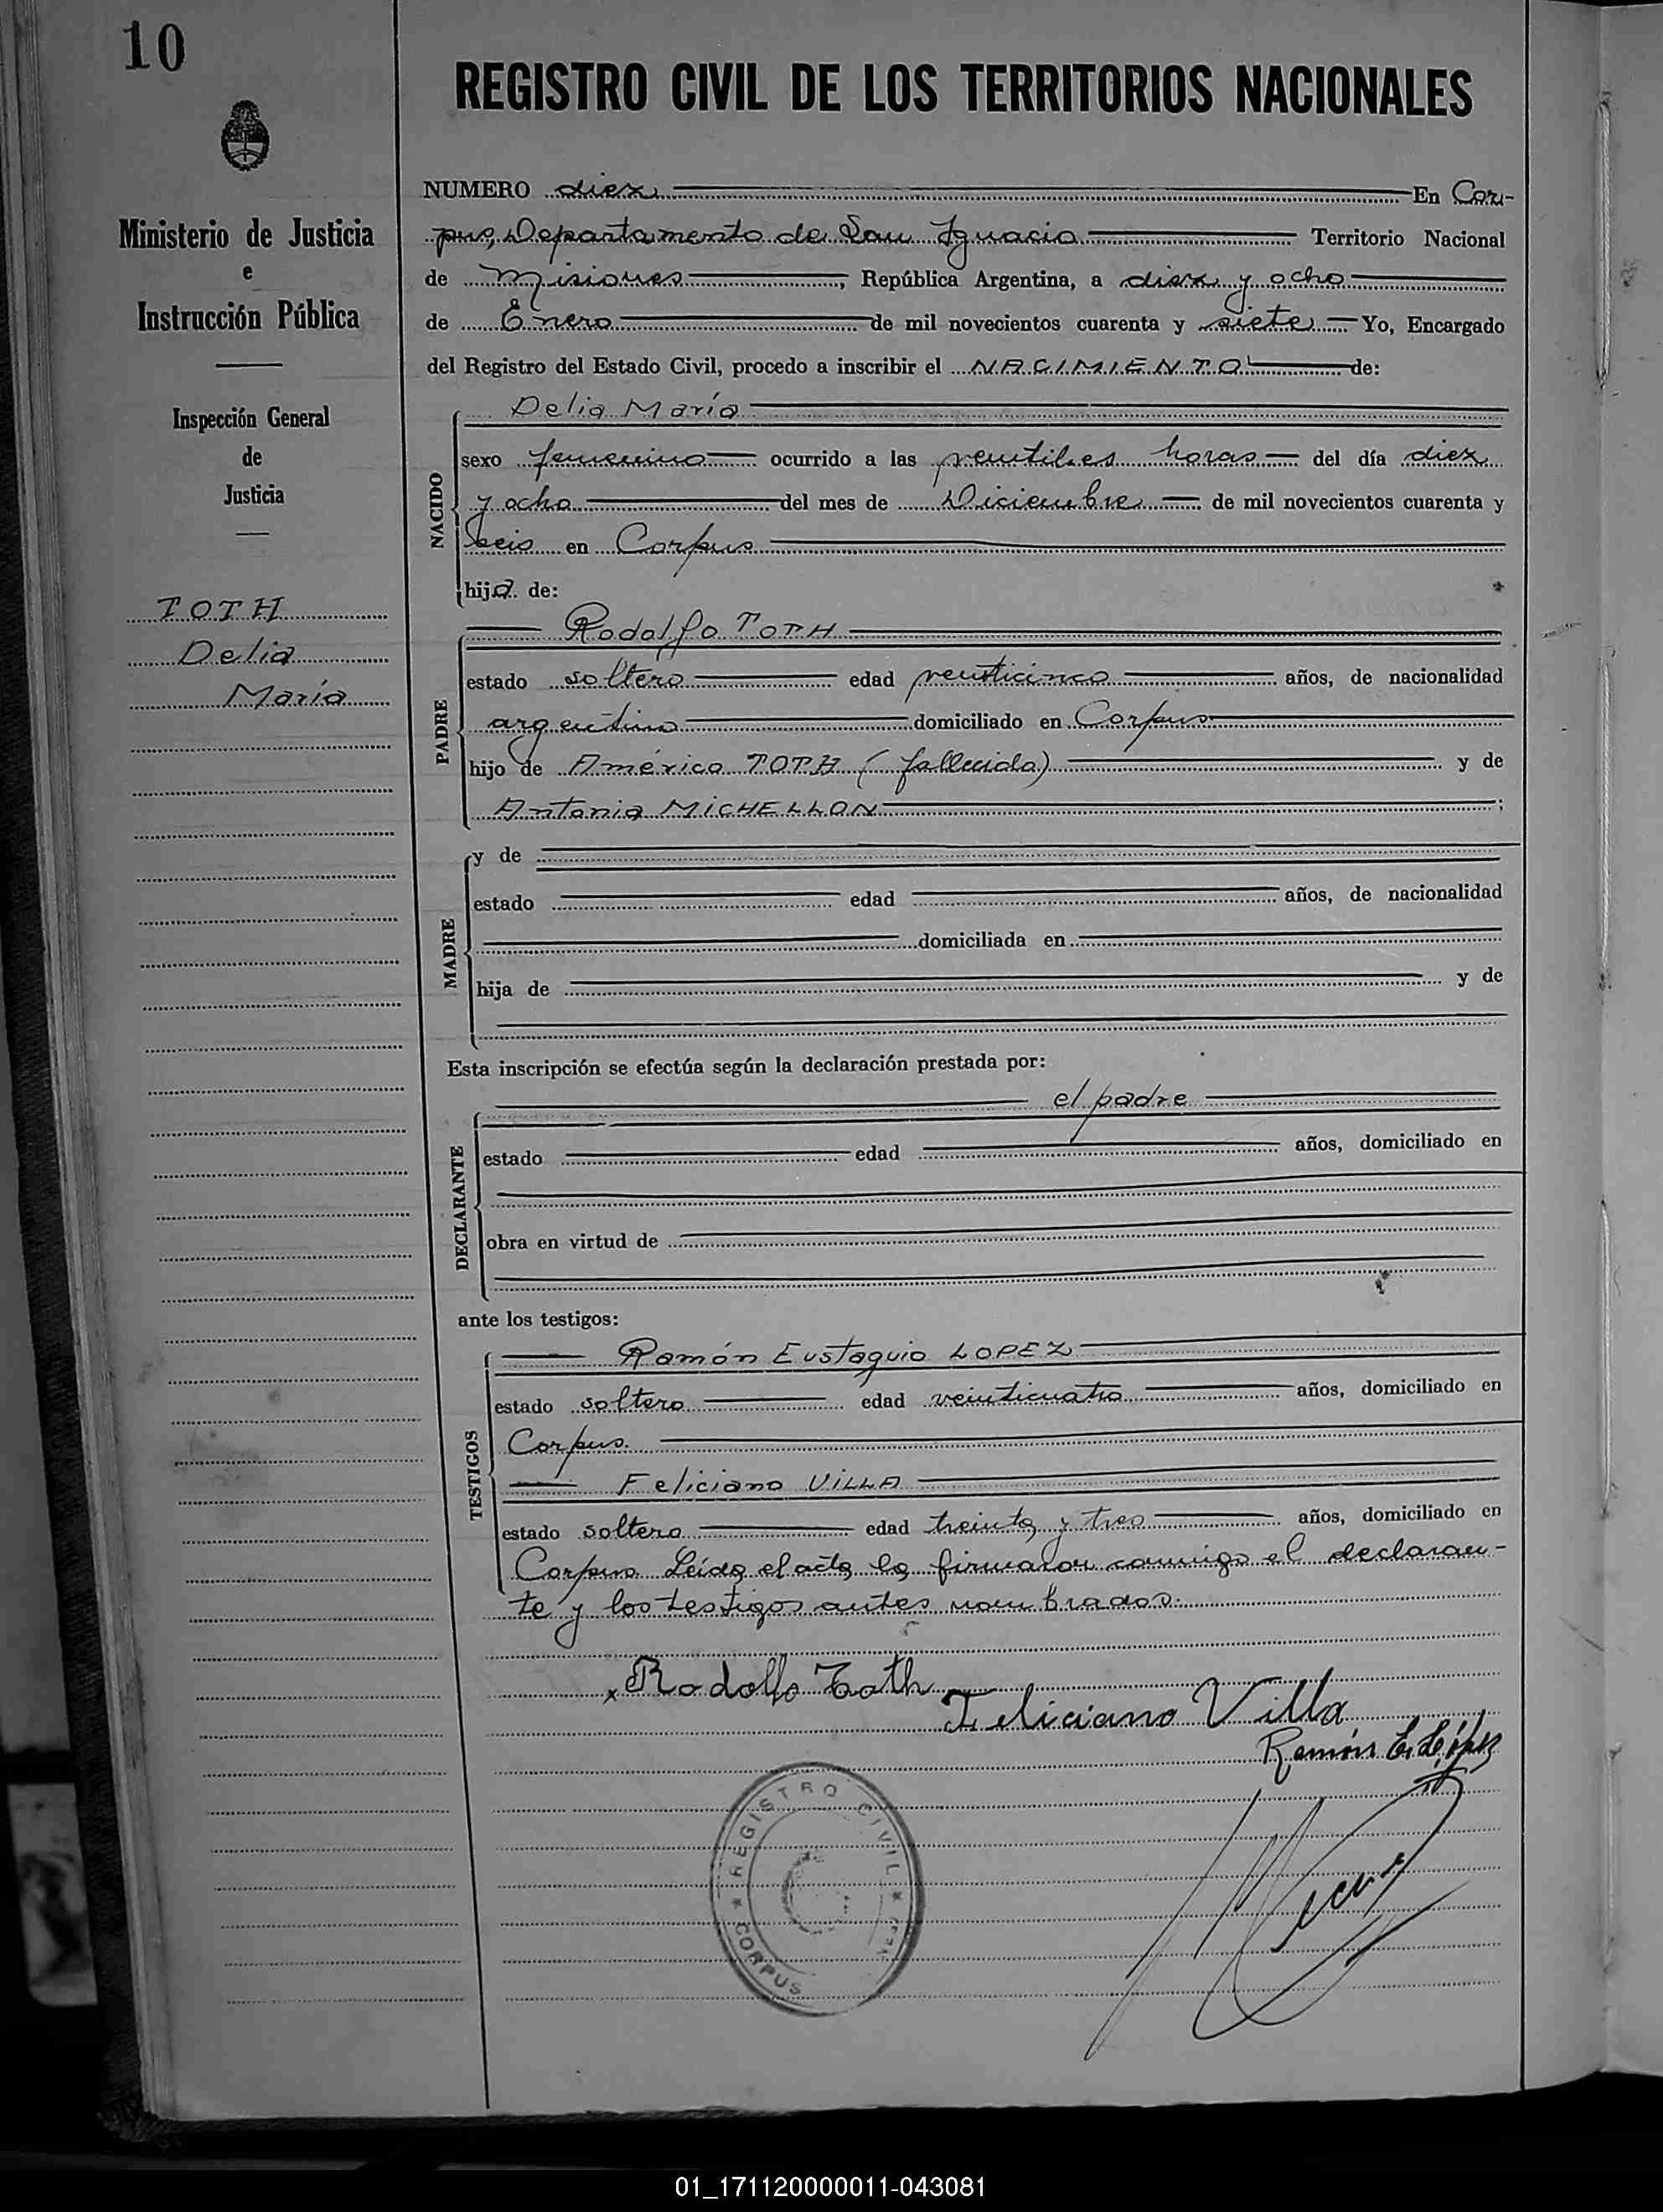 10
REGISTRO CIVIL DE LOS TERRITORIOS NACIONALES
Ministerio de Justicia
e
Instrucción Pública
Inspección General
de
Justicia
TOTH
Delia
María
NUMERO diez En Cor-
pus, Departamento de San Ignacio Territorio Nacional
de Misiones, República Argentina, a diez y ocho
de Enero de mil novecientos cuarenta y siete Yo, Encargado
del Registro del Estado Civil, procedo a inscribir el NACIMIENTO de:
Delia María
NACIDO
sexo femenino ocurrido a las veintitres horas del día diez
y ocho del mes de Diciembre de mil novecientos cuarenta y
seis en Corpus
hija de:
Rodolfo TOTH
PADRE
estado soltero edad veinticinco años, de nacionalidad
argentina domiciliado en Corpus
hijo de Américo TOTH (fallecido) y de
Antonia MICHELLON;
y de
MADRE
estado edad años, de nacionalidad
domiciliada en
hija de y de
Esta inscripción se efectúa según la declaración prestada por:
el padre
DECLARANTE
estado edad años, domiciliado en
obra en virtud de
ante los testigos:
Ramón Eustaquio LOPEZ
TESTIGOS
estado soltero edad veinticuatro años, domiciliado en
Corpus.
Feliciano VILLA
estado soltero edad treinta y tres años, domiciliado en
Corpus. Leída el acta la firmaron conmigo el declaran-
te y los testigos antes nombrados.
Rodolfo Toth
Feliciano Villa
Ramón E. López
REGISTRO CIVIL
CORPUS
01_171120000011-043081